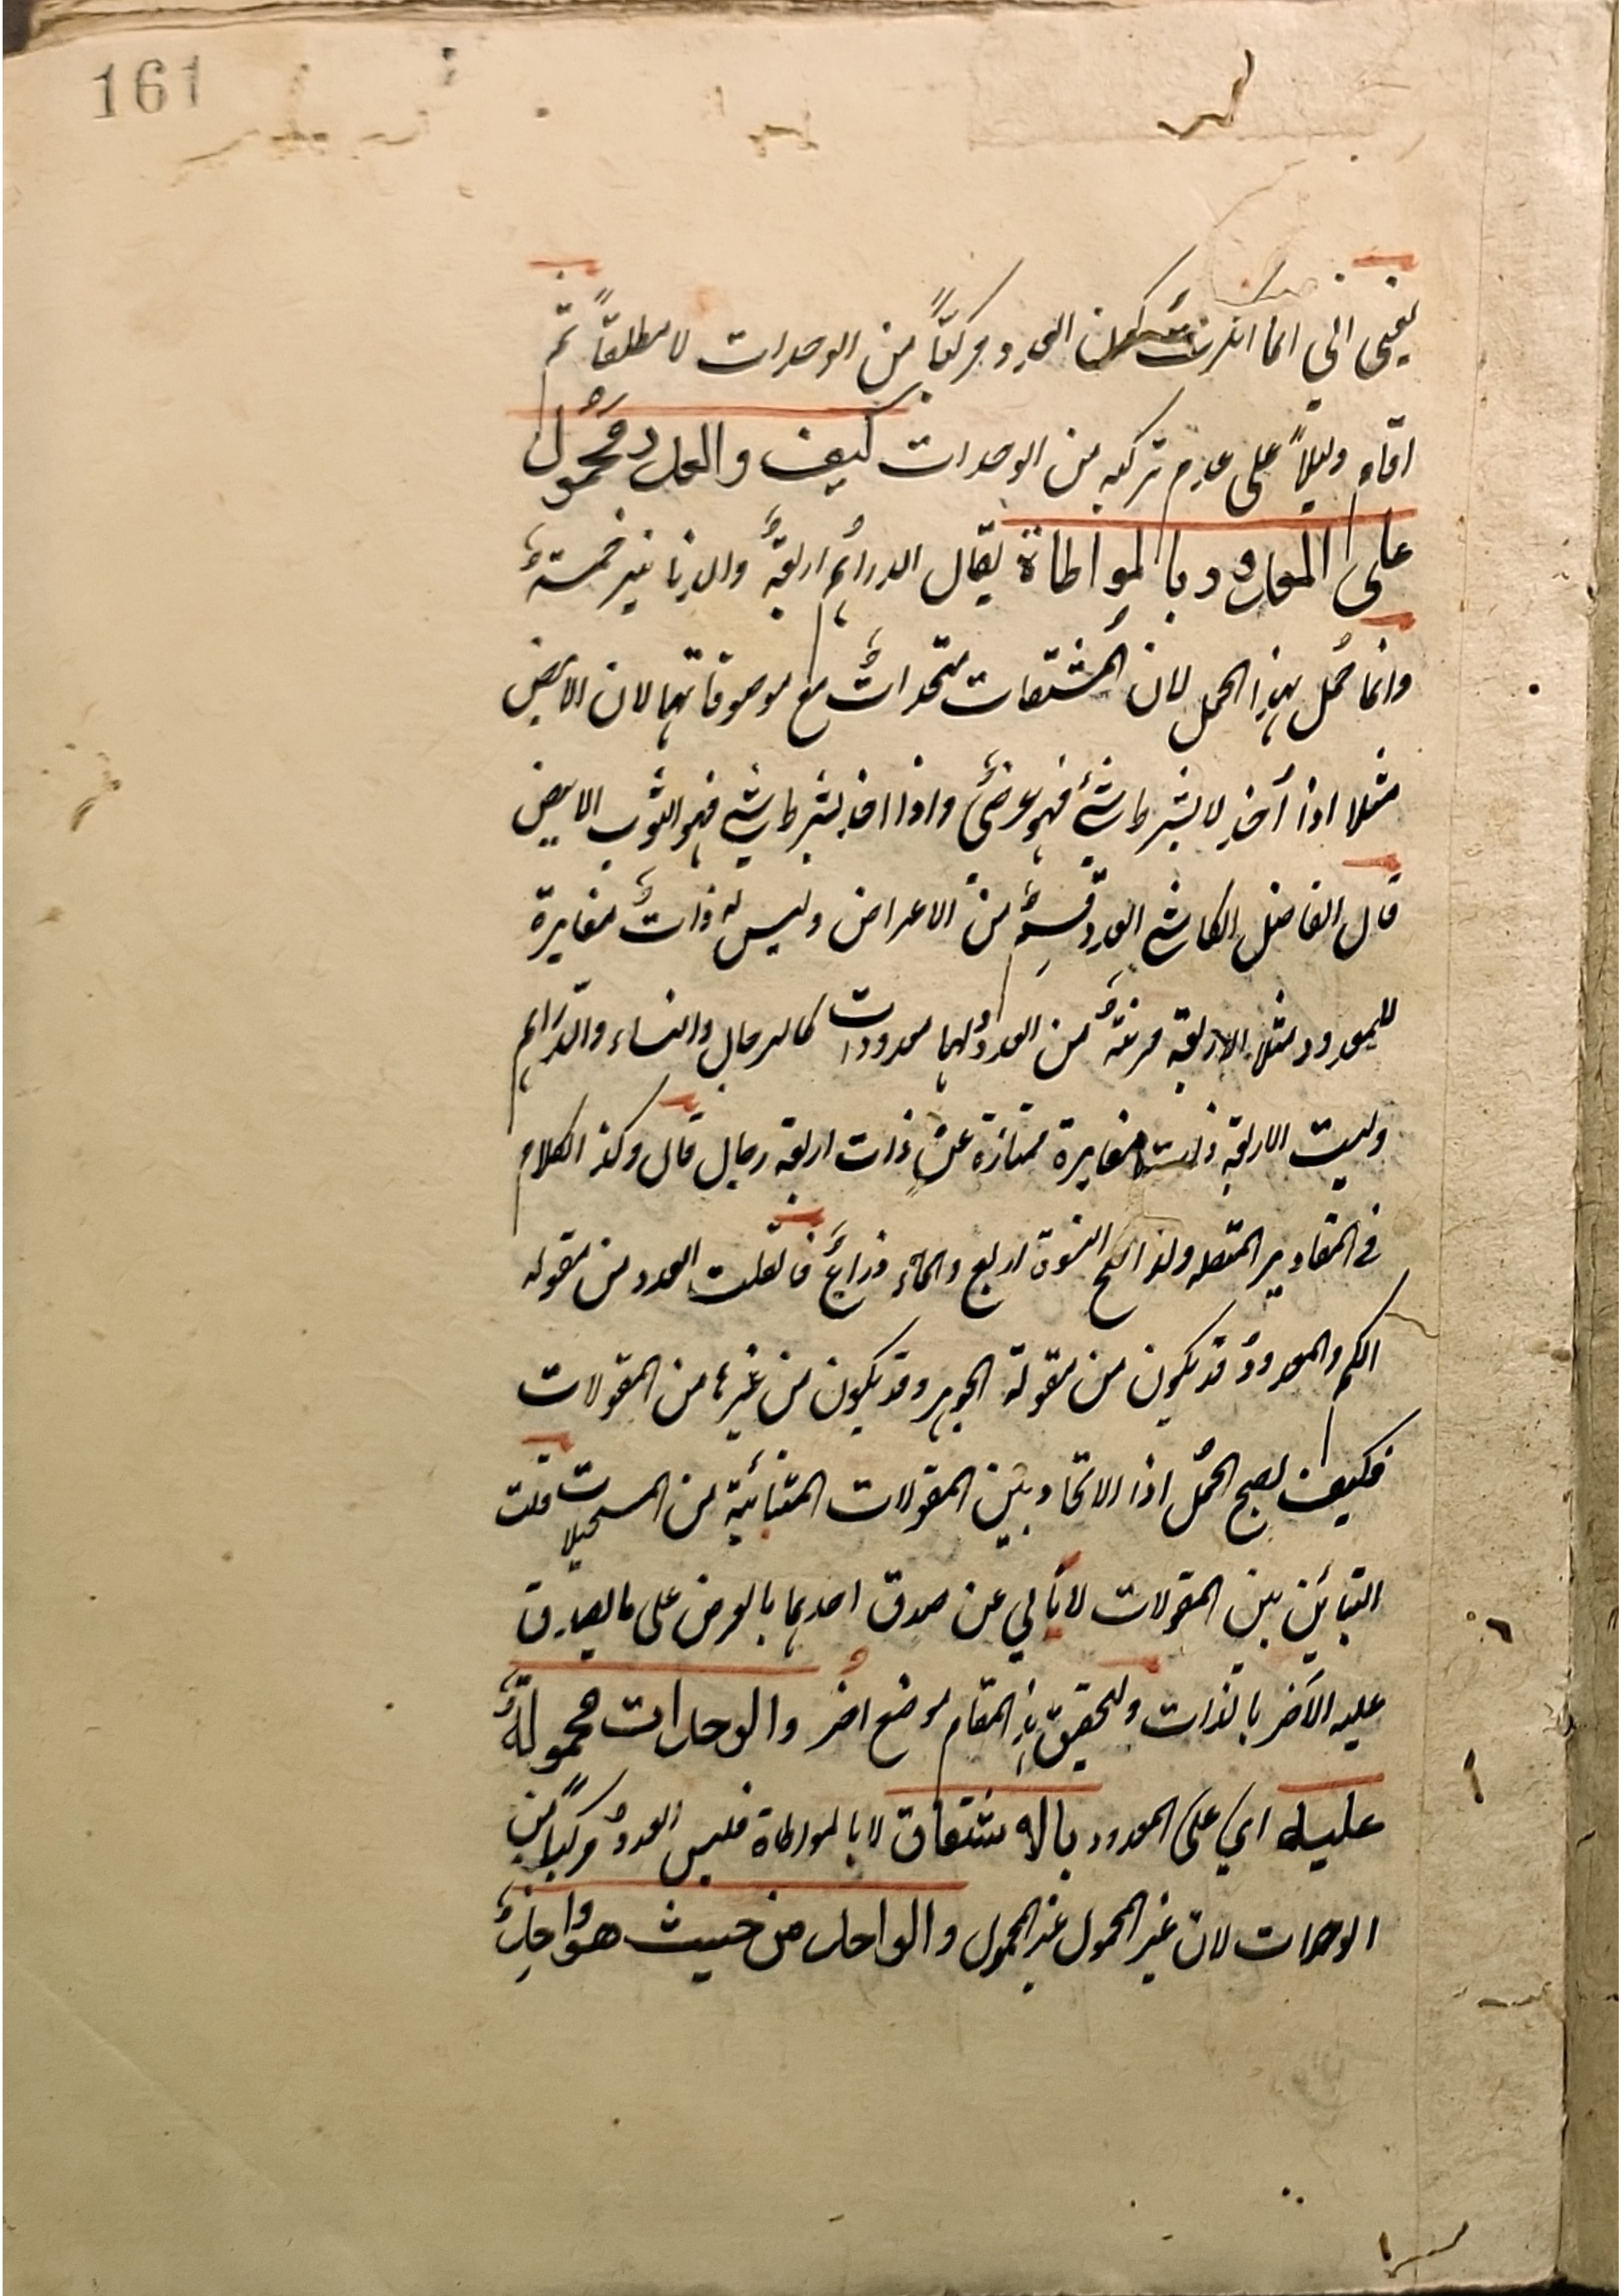 161
يعني اني انما انكرت كون العدد مركبًا من الوحدات لا مطلقًا ثم
اقام دليلًا على عدم تركبه من الوحدات كيف والعدد محمول
على المعدود بالمواطاة يقال الدراهم اربعة والدنانير خمسة
وانما حمل بهذا الحمل لان المشتقات متحدات مع موصوفاتها لان الابيض
مثلا اذا أخذ لا بشرط شئ فهو عرضي واذا اخذ بشرط شئ فهو الثوب الابيض
قال الفاضل الكاشي العدد قسم من الاعراض وليس له ذات مغايرة
للمعدود مثلا الاربعة مرتبة من العدد ولها معدودات كالرجال والنساء والدراهم
وليست الاربعة ذات مغايرة ممتازة عن ذات اربعة رجال قال وكذا الكلام
في المقادير المتصله ولذا صح النسوة اربع والماء ذراع فان قلت العدد من مقوله
الكم والمعدود قد يكون من مقولة الجوهر وقد يكون من غيرها من المقولات
فكيف يصح الحمل اذا الاتحاد بين المقولات المتبائنة من المستحيلات قلت
التبائن بين المقولات لا يأبى عن صدق احدهما بالعرض على ما يصدق
عليه الآخر بالذات ولتحقيق هذا المقام موضع اخر والوحدات محمولة
عليه اي على المعدود بالاشتقاق لا بالمواطاة فليس العدد مركبًا من
الوحدات لان غير المحمول غير المحمول والواحد من حيث هو واحد